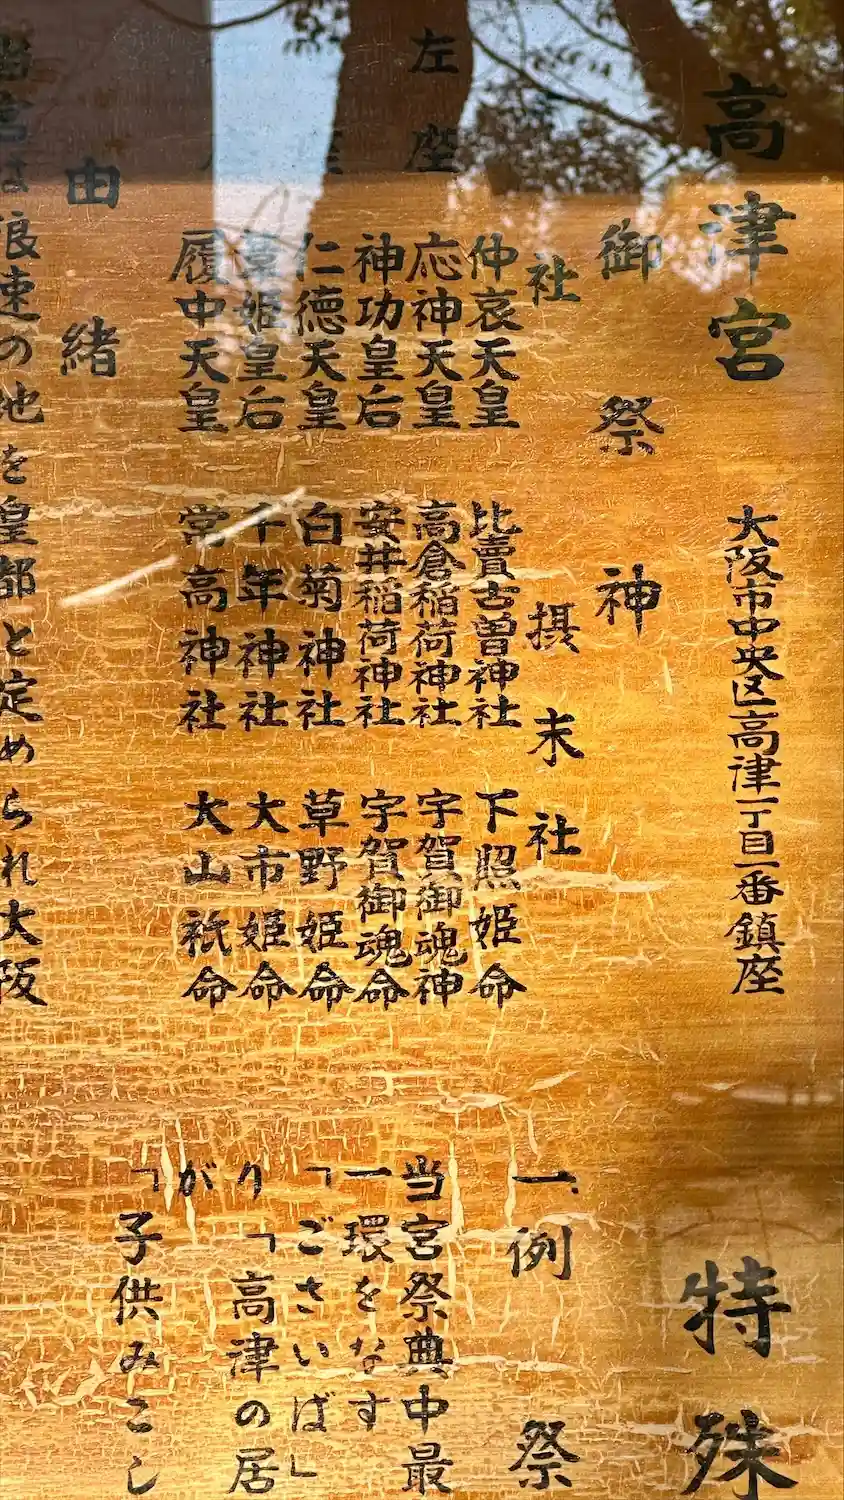 高津宮
大阪市中央区高津一丁目一番鎮座
御祭神
摂末社
社
仲哀天皇
比賣古曽神社
下照姫命
左座
応神天皇
高倉稲荷神社
宇賀御魂神
神功皇后
安井稲荷神社
宇賀御魂命
仁徳天皇
白菊神社
草野姫命
葦姫皇后
千年神社
大市姫命
履中天皇
常高神社
大山祇命
由緒
当宮は浪速の地を皇都と定められ大阪
特殊
一、例祭
当宮祭典中最
一環をなす
「ございば」
り「高津の居
が
「子供みこし